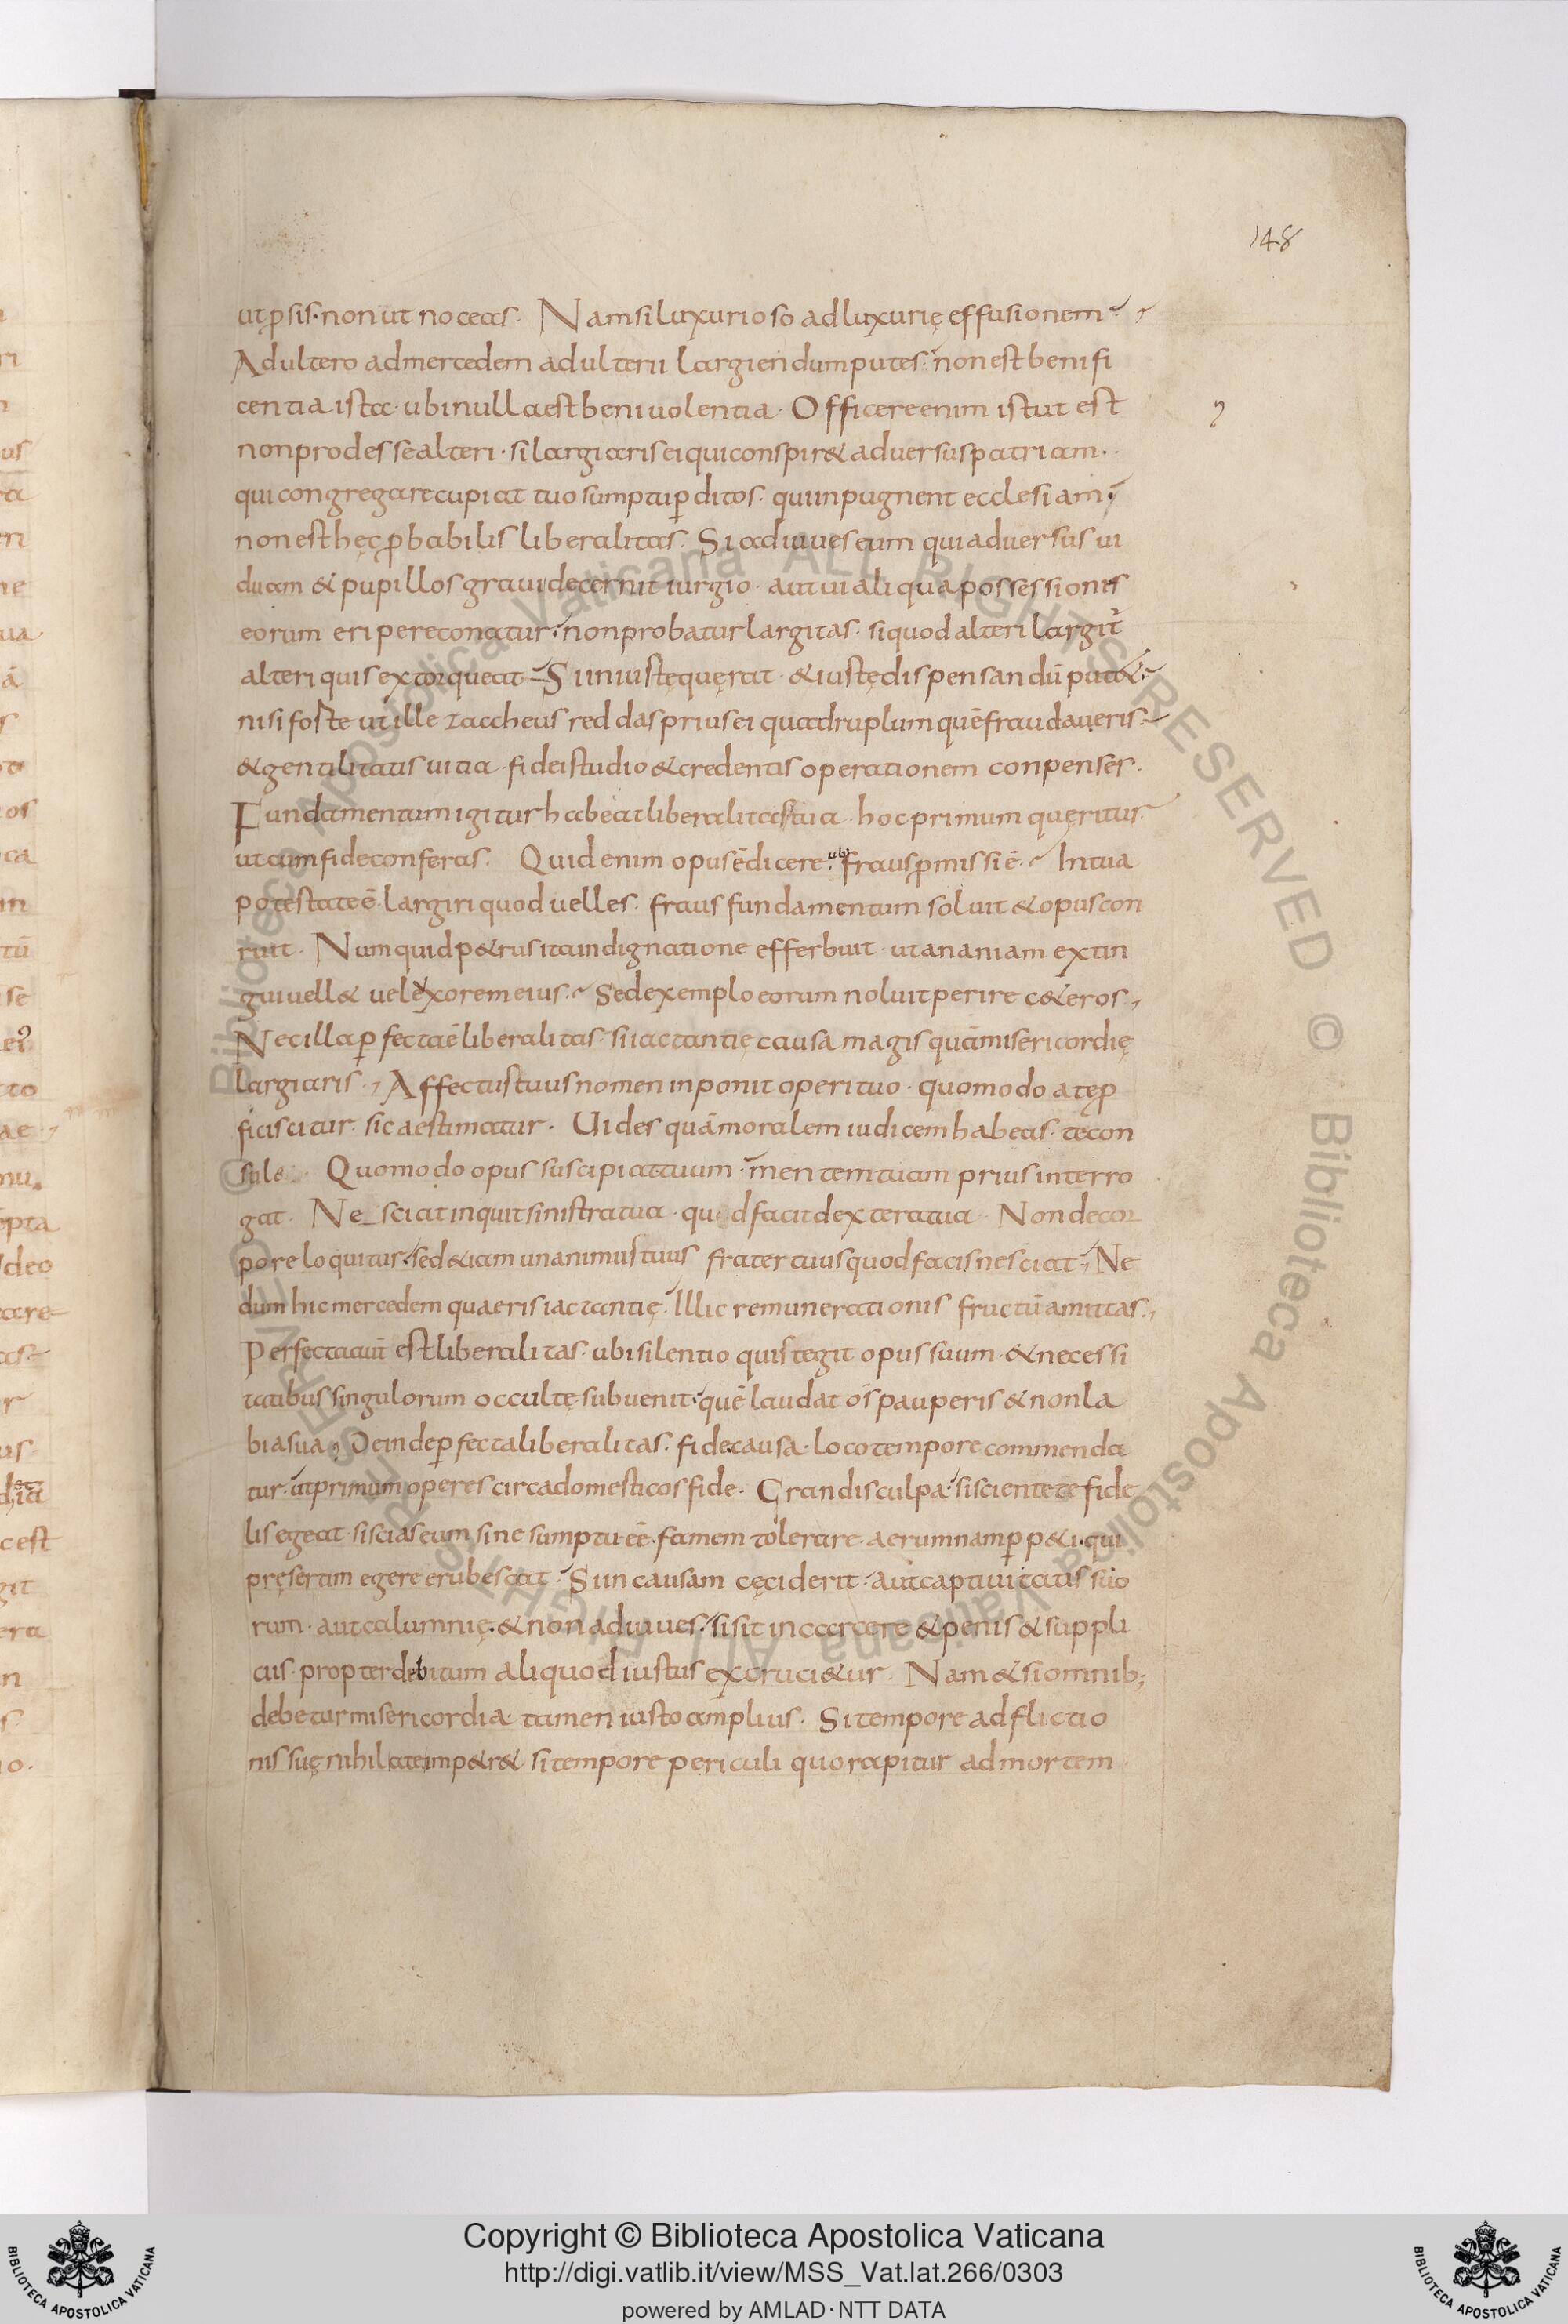 148
ut ꝓsis· non ut noceas· Nam si luxurioso ad luxurię effusionem·
Adultero ad mercedem adulterii largiendum putes· non est benifi
centia ista· ubi nulla est beniuolentia· Officere enim istut est
non prodesse alteri· si largiaris ei qui conspir& aduersus patriam·
qui congregare cupiat tuo sumptu ꝑditos· qui inpugnent ecclesiam·
non est hęc ꝓbabilis liberalitas· Si adiuues eum qui aduersus ui
duam & pupillos graui decernit iurgio· aut ui aliqua possessiones
eorum eripere conatur· non probatur largitas· si quod alteri largit᷑
alteri quis extorqueat Si iniustę quęrat· & iustę dispensandū put&·
nisi foste ut ille zaccheus reddas prius ei quadruplum quē fraudaueris·
& gentilitatis uitia· fidei studio & credentis operationem conpenses·
Fundamentum igitur habeat liberalitas tua· hoc primum quęritur·
ut cum fide conferas· Quid enim opus ē dicere· ubi fraus ꝓmissi ē· In tua
potestate ē largiri quod uelles· fraus fundamentum soluit & opus con
ruit· Numquid p&rus ita indignatione efferbuit· ut ananiam extin
gui uell& uel exorem eius· Sed exemplo eorum noluit perire c&eros·
Nec illa ꝑfecta ē liberalitas· si iactantię causa magis quā misericordię
largiaris· Affectus tuus nomen inponit operi tuo· quomodo a te ꝓ
ficiscitur· sic aestimatur· Uides quā moralem iudicem habeas· te con
sul Quomodo opus suscipiat tuum· mentem tuam prius interro
gat· Nesciat inquit sinistra tua· quod facit dextera tua· Non de cor
pore loquitur· sed &iam unanimus tuus frater tuus quod facis nesciat· Ne
dum hic mercedem quaeris iactantię· Illic remunerationis fructū amittas·
Perfecta aut̄ est liberalitas· ubi silentio quis tegit opus suum· & necessi
tatibus singulorum occultę subuenit· quē laudat os pauperis & non la
bia sua· Dein de ꝑfecta liberalitas· fide causa· loco tempore commenda
tur· ut primum operes circa domesticos fide· Grandis culpa· si sciente te fide
lis egeat· si scias eum sine sumptu eē· famem tolerare· aerumnam ꝑp&i· qui
pręsertim egere erubescat· Si in causam cęciderit· aut captiuitatis suo
rum· aut calumnię· & non adiuues· si sit in carcere & penis & suppli
ciis· propter debitum aliquod iustus excruci&ur· Nam & si omnib;
debetur misericordia· tamen iusto amplius· Si tempore adflictio
nis suę nihil a te imp&r& si tempore periculi quo rapitur ad mortem
Copyright © Biblioteca Apostolica Vaticana
http://digi.vatlib.it/view/MSS_Vat.lat.266/0303
powered by AMLAD·NTT DATA
BIBLIOTECA APOSTOLICA VATICANA
BIBLIOTECA APOSTOLICA VATICANA
© Biblioteca Apostolica Vaticana ALL RIGHTS RESERVED © Biblioteca Apostolica Vaticana ALL RIGHTS RESERVED